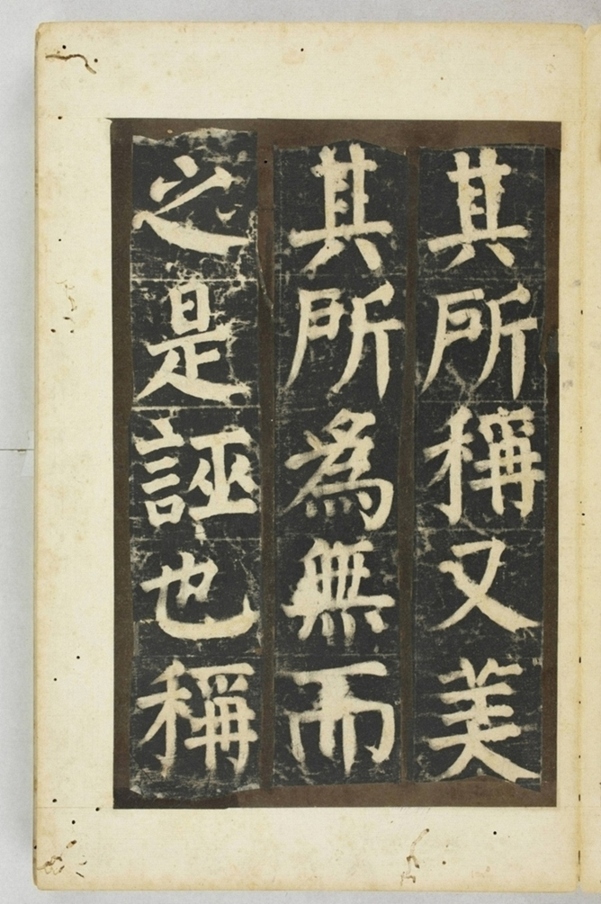 其所稱又美
其所為無而
之是誣也稱